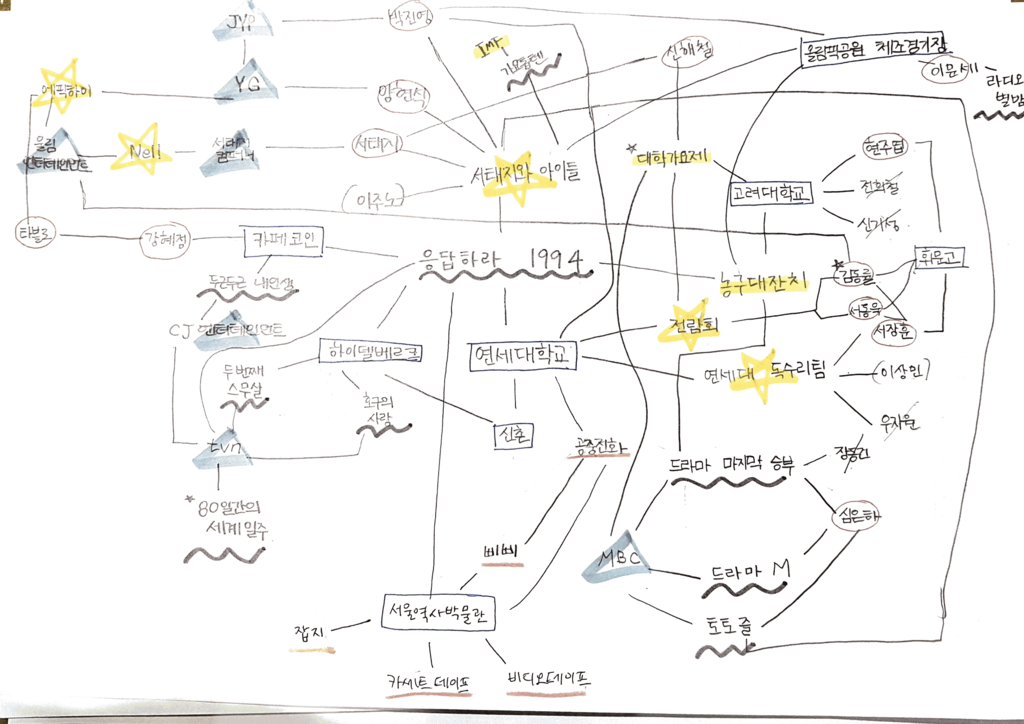 JYP
박진영
IMF
가요톱텐
신해철
올림픽공원 체조경기장
이문세
라디오
별밤
에픽하이
YG
양현석
울림
엔터테인먼트
Nell
서태지
컴퍼니
서태지
서태지와 아이들
(이주노)
*대학가요제
고려대학교
현주엽
전희철
신기성
타블로
강혜정
카페코인
응답하라 1994
농구대잔치
*김동률
휘문고
두근두근 내인생
서동욱
서장훈
CJ 엔터테인먼트
전람회
하이델베르크
연세대학교
연세대 독수리팀
(이상민)
두번째
스무살
호구의
사랑
신촌
공중전화
우지원
장동건
tvn
드라마 마지막 승부
*80일간의
세계일주
심은하
삐삐
MBC
드라마 M
서울역사박물관
토토즐
잡지
카세트테이프
비디오테이프